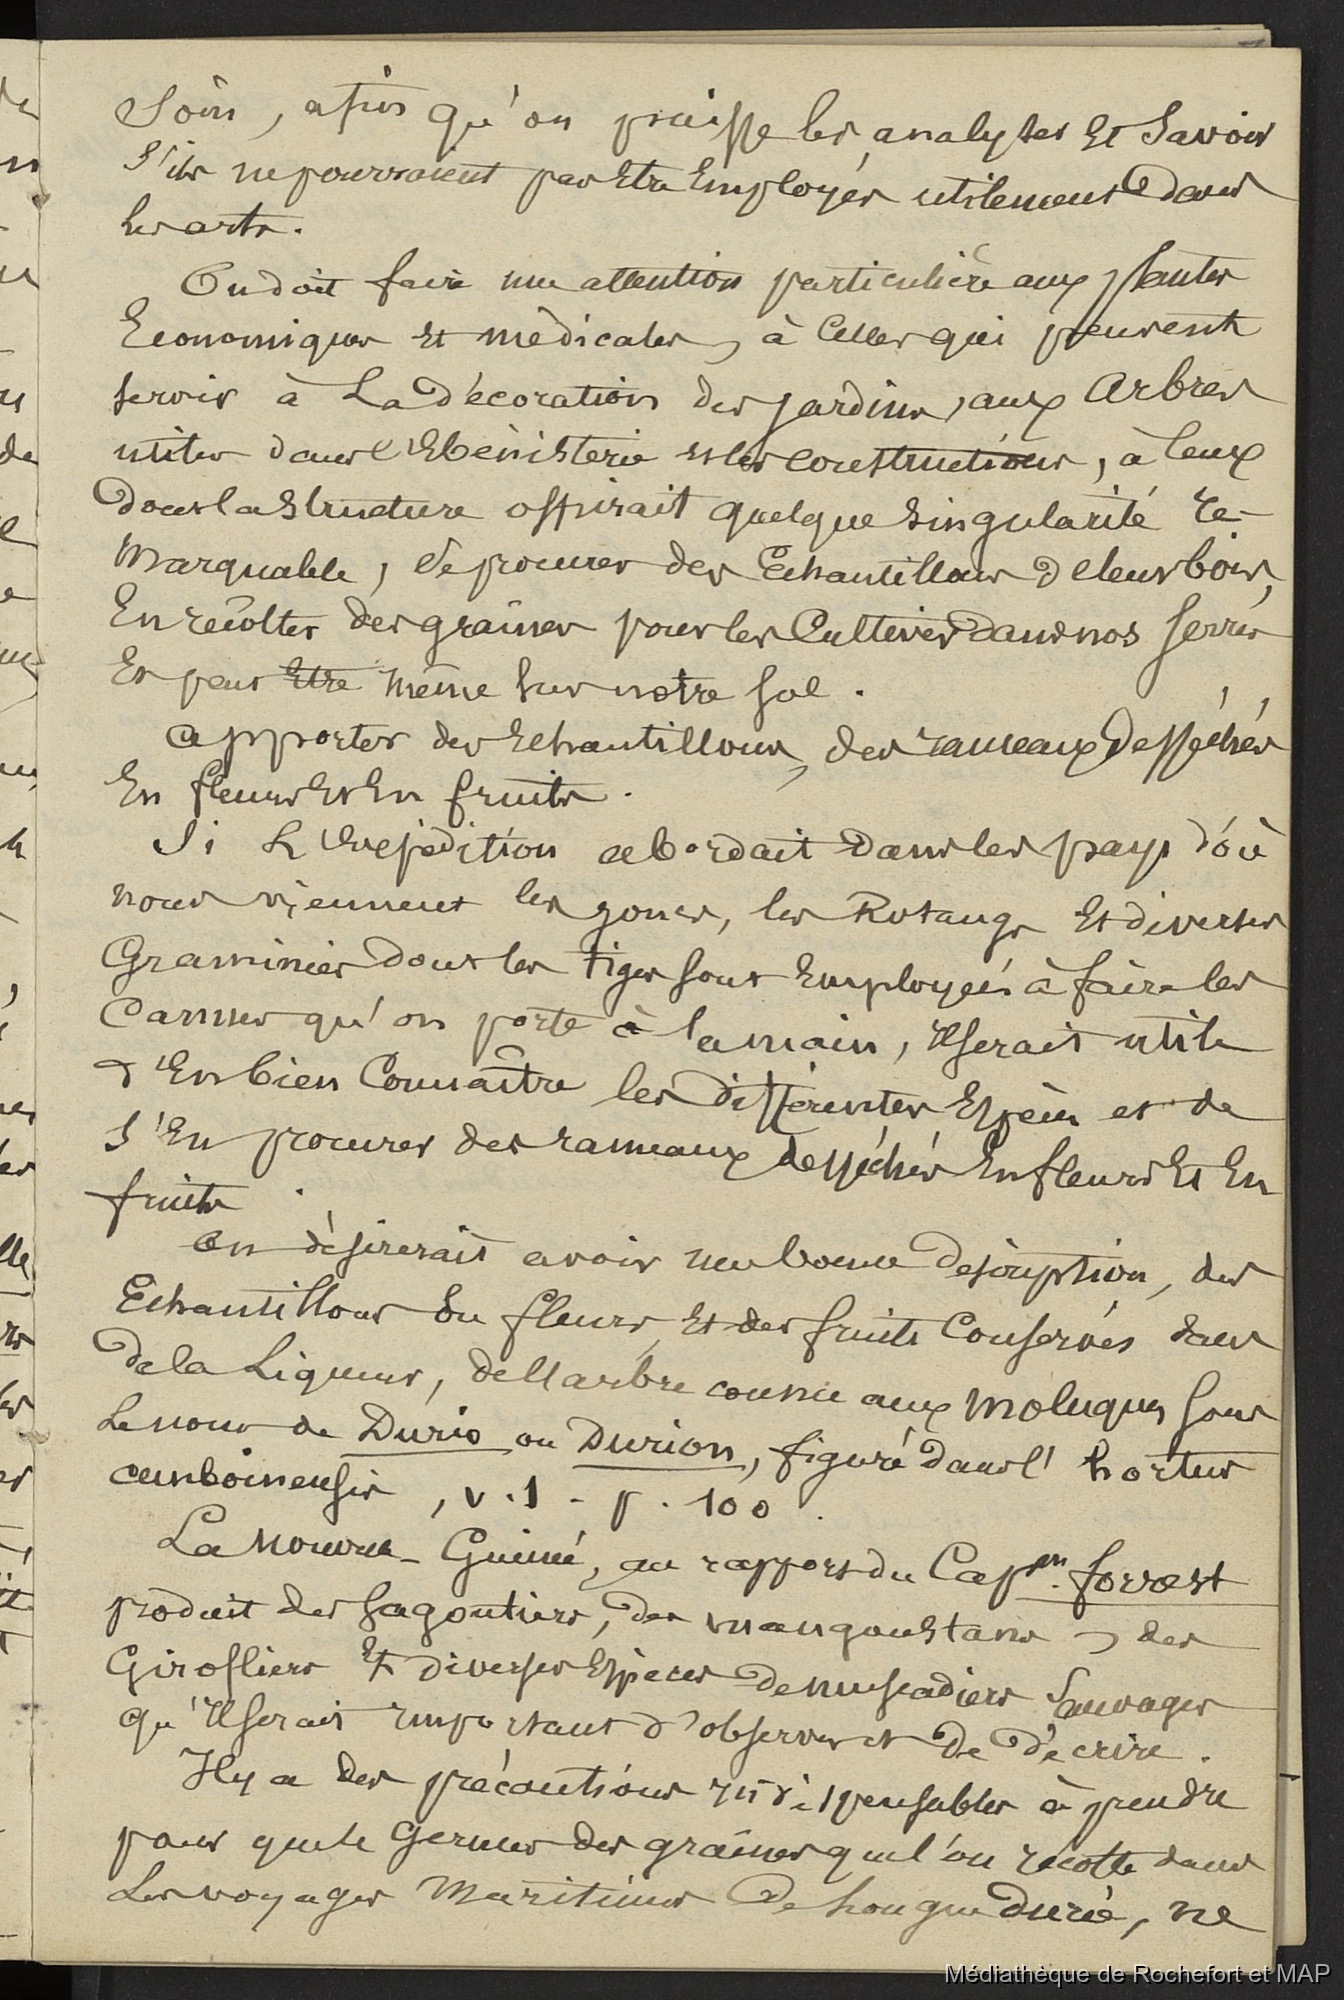 Soin, afin qu'on puisse les analyser Et Savoir
S'ils ne pourraient pas Etre Employés utilement dans
les arts.
On doit faire une attention particulière aux plantes
Economiques Et médicales, à Celles qui peuvent
servir à La Décoration des jardins, aux Arbres
utiles dans l'Ebénisterie et les constructions, à Ceux
dont la Structure offrirait quelque Singularité re-
Marquable, Se procurer des Echantillons de leurs bois,
En récolter des graines pour les Cultiver dans nos serres
Et peut Etre même sur notre sol.
apporter des Echantillons, des rameaux Desséchés
En fleurs Et En fruits.
Si L'Expédition abordait dans les pays d'où
nous viennent les joncs, les Rotangs Et diverses
Graminées dont les tiges sont Employées à faire les
Cannes qu'on porte à la main, Il serait utile
d'En bien Connaître les différentes Espèces et de
S'En procurer des rameaux desséchés En fleurs Et En
fruits.
on désirerait avoir une bonne description, des
Echantillons En fleurs, Et des fruits Conservés dans
de la Liqueur, de l'arbre connu aux Moluques sous
Le nom de Durio ou Durion, figuré dans l'hortus
amboinensis, v. 1 - p. 100.
La Nouvelle-Guinée, au rapport du Cap.en forrest
produit des sagoutiers, des mangoustans, des
Girofliers Et diverses Espèces de muscadiers Sauvages
qu'Il serait Important d'observer et De Décrire.
Il y a des précautions Indispensables à prendre
pour que le Germe des graines que l'on récolte dans
Les voyages Maritimes De longue durée, ne
Médiathèque de Rochefort et MAP